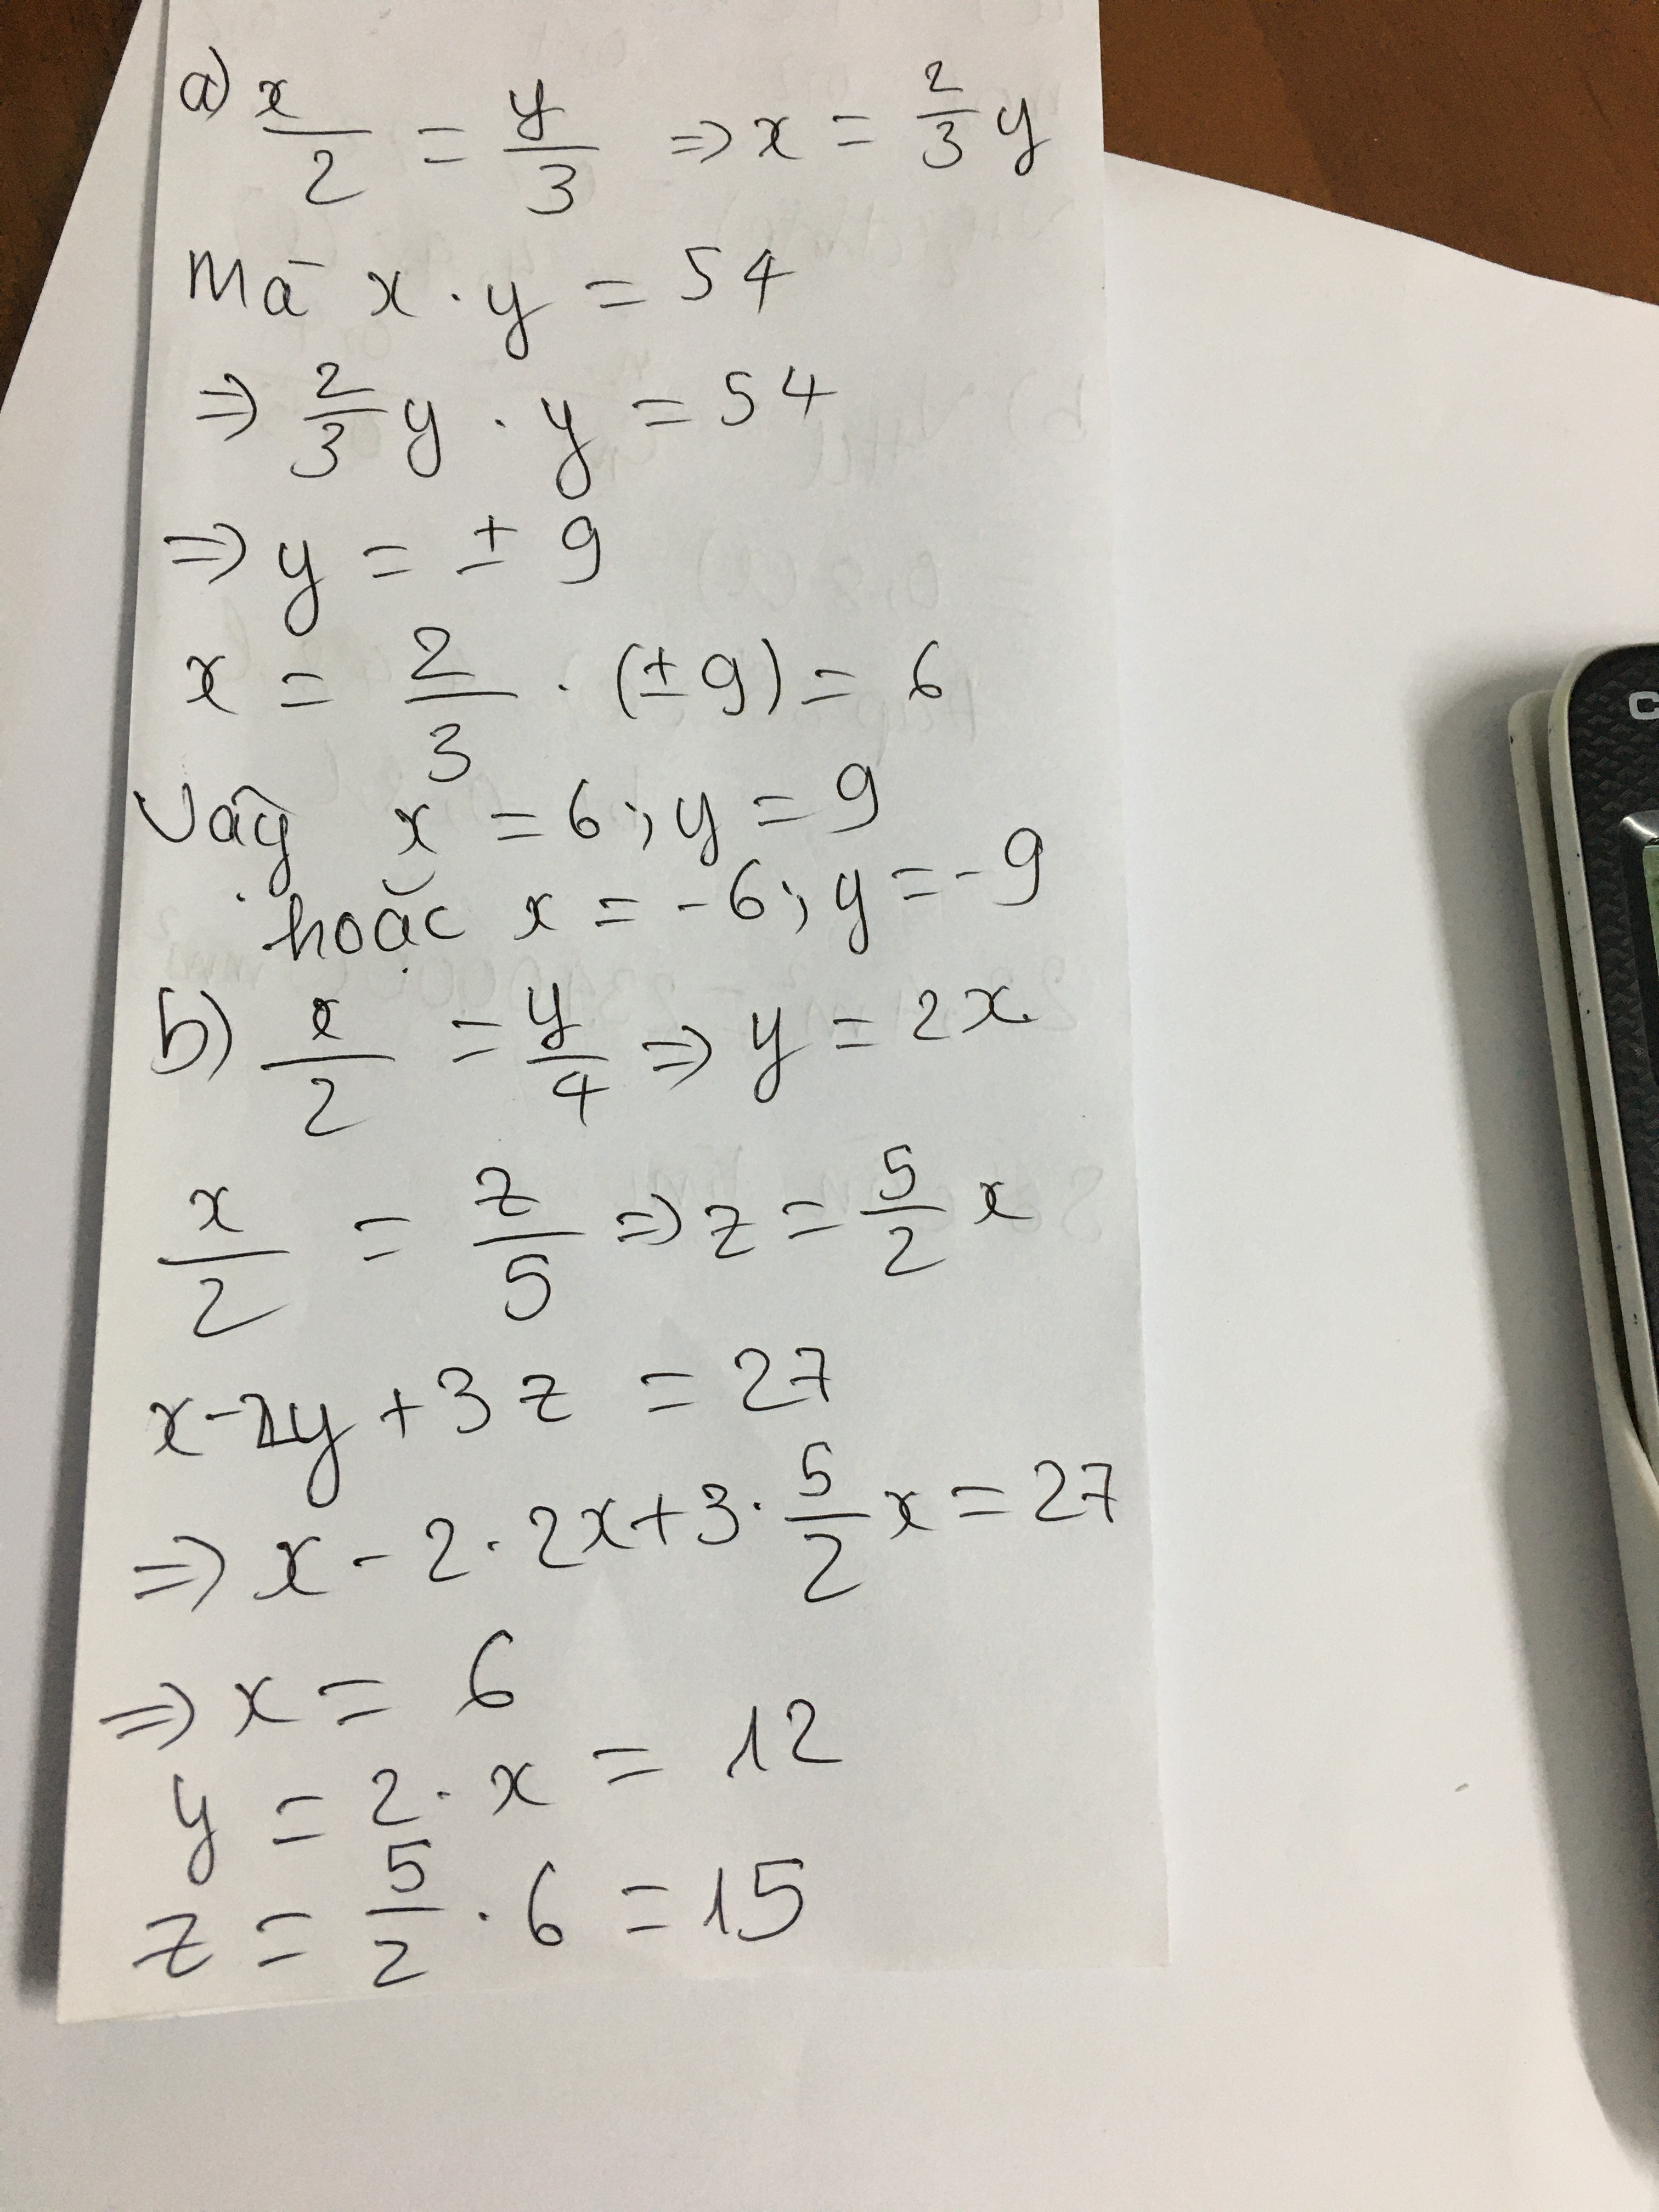 a) x/2 = y/3 => x = 2/3 y
Mà x . y = 54
=> 2/3 y . y = 54
=> y = ± 9
x = 2/3 . (± 9) = 6
Vậy x = 6 ; y = 9
hoặc x = -6 ; y = -9
b) x/2 = y/4 => y = 2x
x/2 = z/5 => z = 5/2 x
x - 2y + 3z = 27
=> x - 2 . 2x + 3 . 5/2 x = 27
=> x = 6
y = 2 . x = 12
z = 5/2 . 6 = 15
C